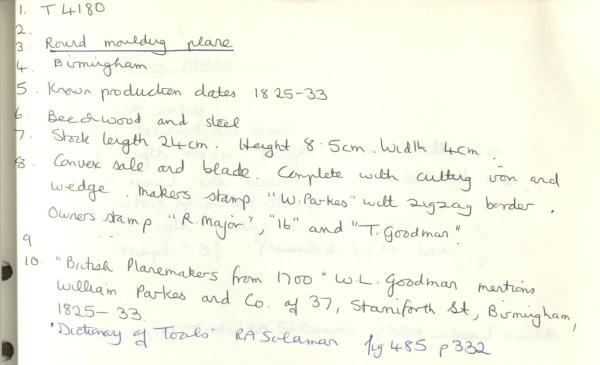 1. T 4180
2.
3. Round moulding plane
4. Birmingham
5. Known production dates 1825-33
6. Beechwood and steel
7. Stock length 24cm. Height 8.5cm. Width 4cm.
8. Convex sole and blade. Complete with cutting iron and
wedge makers stamp "W. Parkes" with zigzag border.
Owners stamp "R. Major", "16" and "T. Goodman".
9
10. "British Planemakers from 1700" W.L. Goodman mentions
William Parkes and Co. of 37, Staniforth St, Birmingham,
1825-33.
"Dictionary of Tools" RA Salaman fig 485 p332